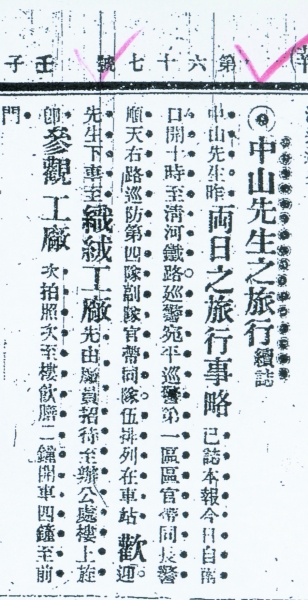 第六十七號 壬子
◎中山先生之旅行續誌
中山先生昨兩日之旅行事略已誌本報今日自南
口開十時至淸河鐵路巡警宛平巡警第一區區官帶同長警
順天右路巡防第四隊副隊官帶同隊伍排列在車站歡迎。
先生下車至織絨工廠先由廠員招待至辦公處樓上旋
卽參觀工廠次拍照次至樓飲膳二鐘開車四鐘至前
門